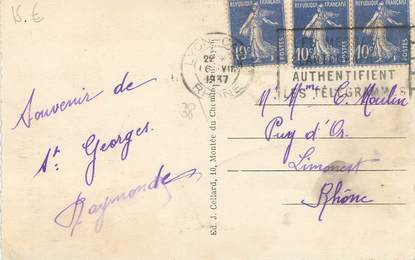 15.E
REPUBLIQUE FRANÇAISE
REPUBLIQUE FRANÇAISE
REPUBLIQUE FRANÇAISE
10c POSTES
10c POSTES
10c POSTES
LYON
1937
RHONE
AUTHENTIFIENT
LES TÉLÉGRAMMES
Souvenir de
St Georges
Raymonde
38
Ed. J. Cellard, 10, Montée du Chemin
Mr Mme C. Moulin
Puy d'Or
Limonest
Rhône